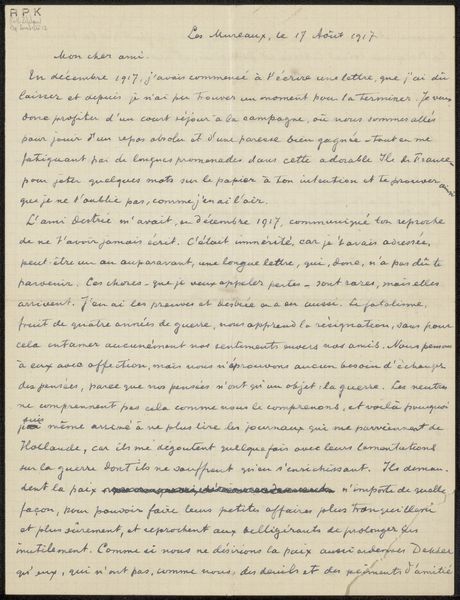 R P K
Les Mureaux, le 17 Août 1917
Mon cher ami.
En décembre 1917, j'avais commencé à t'écrire une lettre, que j'ai dû
laisser et depuis je n'ai pu trouver un moment pour la terminer. Je veux
donc profiter d'un court séjour à la campagne, où nous sommes allés
pour jouir d'un repos absolu et d'une paresse bien gagnée - tout en me
fatiguant par de longues promenades dans cette adorable Ile de France -
pour jeter quelques mots sur le papier à ton intention et te prouver ainsi
que je ne t'oublie pas, comme j'en ai l'air.
L'ami Destrée m'avait, en décembre 1917, communiqué ton reproche
de ne t'avoir jamais écrit. C'était immérité, car je t'avais adressée,
peut être un an auparavant, une longue lettre, qui, donc, n'a pas dû te
parvenir. Ces choses - que je veux appeler pertes - sont rares, mais elles
arrivent. J'en ai les preuves et Destrée en a eu aussi. Le fatalisme,
fruit de quatre années de guerre, nous apprend la résignation, sans pour
cela entamer aucunement nos sentiments envers nos amis. Nous pensons
à eux avec affection, mais nous n'éprouvons aucun besoin d'échanger
des pensées, parce que nos pensées n'ont qu'un objet: la guerre. Les neutres
ne comprennent pas cela comme nous le comprenons, et voilà pourquoi
je suis même arrivé à ne plus lire les journaux que me parviennent de
Hollande, car ils me dégoutent quelque fois avec leurs lamentations
sur la guerre dont ils ne souffrent qu'en s'enrichissant. Ils deman-
dent la paix n'importe de quelle
façon, pour pouvoir faire leurs petites affaires plus tranquillement
et plus sûrement, et reprochent aux belligérants de prolonger
inutilement. Comme si nous ne désirions la paix aussi
qu'eux, qui n'ont pas, comme nous, des deuils et des d'amitié